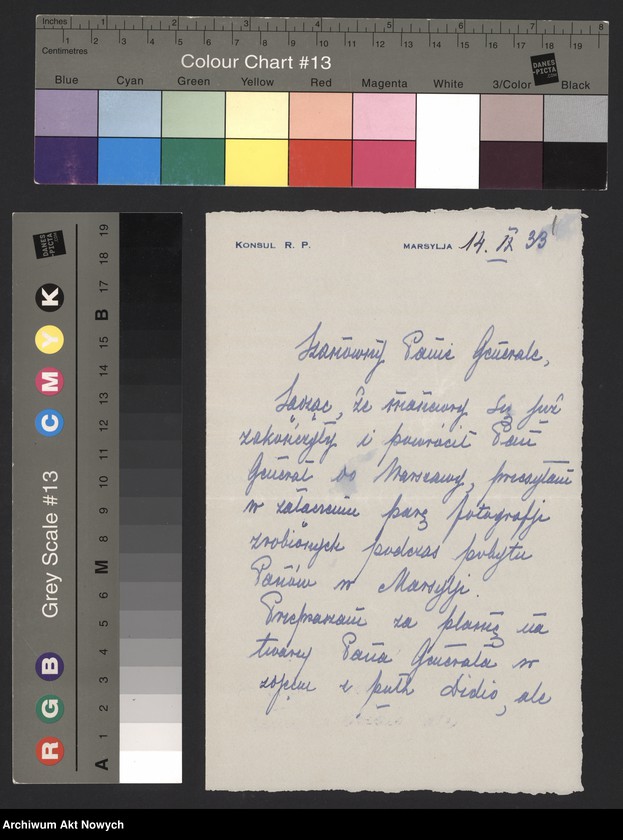 Inches 1 2 3 4 5 6 7 8
Centimetres 1 2 3 4 5 6 7 8 9 10 11 12 13 14 15 16 17 18 19
Colour Chart #13
DANES-PICTA.COM
Blue Cyan Green Yellow Red Magenta White 3/Color Black
DANES-PICTA.COM
Grey Scale #13
R G B C M Y K
A 1 2 3 4 5 6 M 8 9 10 11 12 13 14 15 B 17 18 19
KONSUL R. P. MARSYLJA 14. IX 33
Szanowny Panie Generale,
Sądząc, że manewry się już
zakończyły i powrócił Pan
Generał do Warszawy, przesyłam
w załączeniu parę fotografji
zrobionych podczas pobytu
Panów w Marsylji.
Przepraszam za plamę na
twarzy Pana Generała w
zdjęciu z pułk Didio, ale
Archiwum Akt Nowych